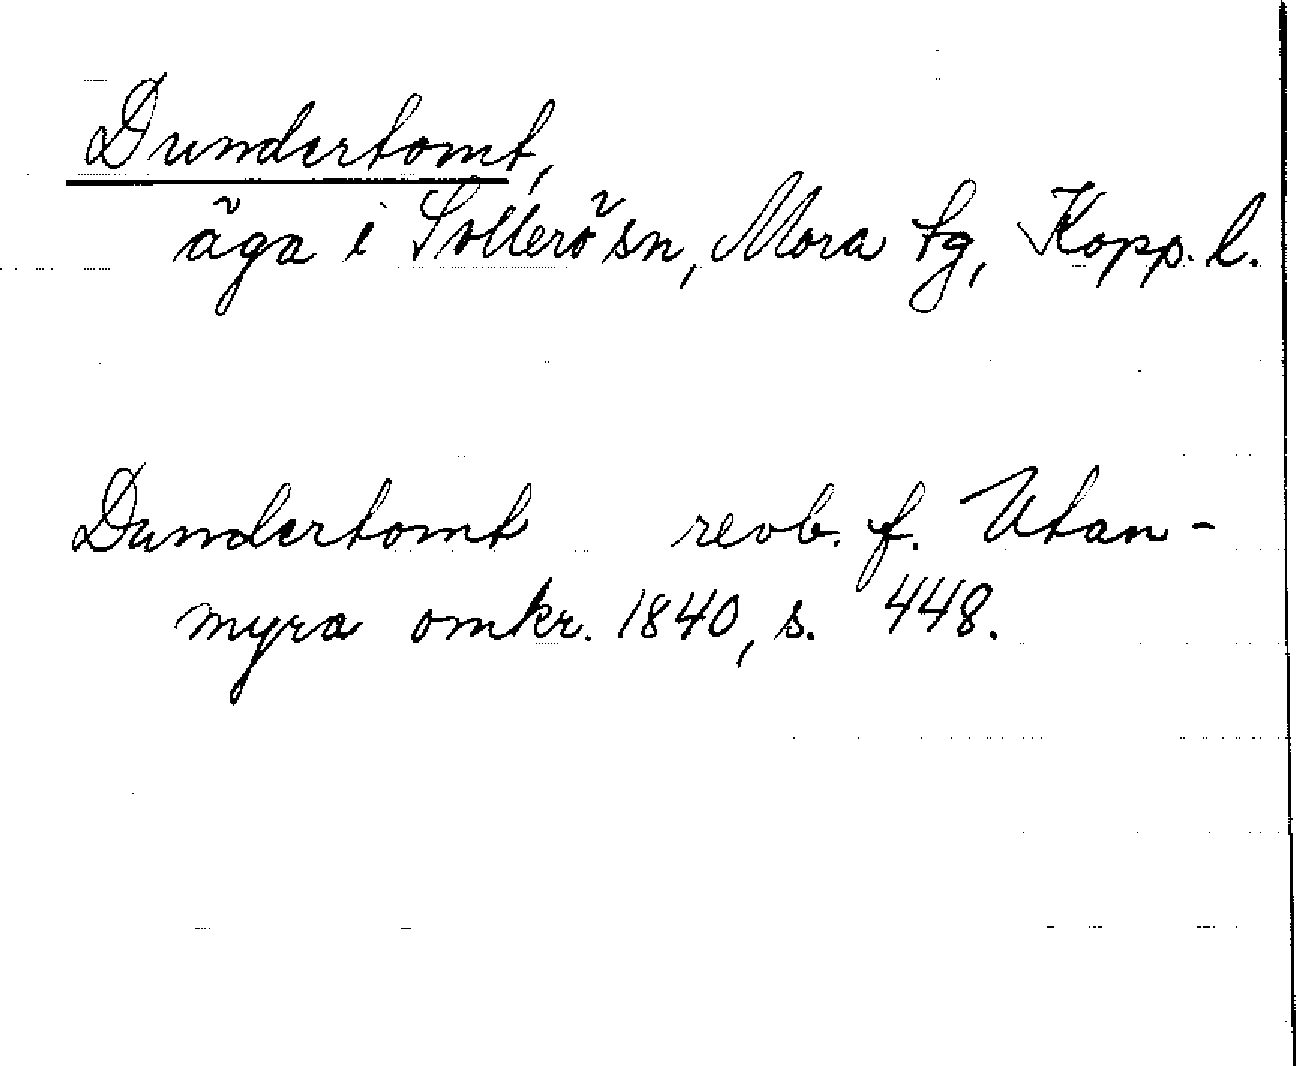 Dundertomt,
äga i Sollerö sn, Mora tg, Kopp. l.
Dundertomt revb. f. Utan-
myra omkr. 1840, s. 448.